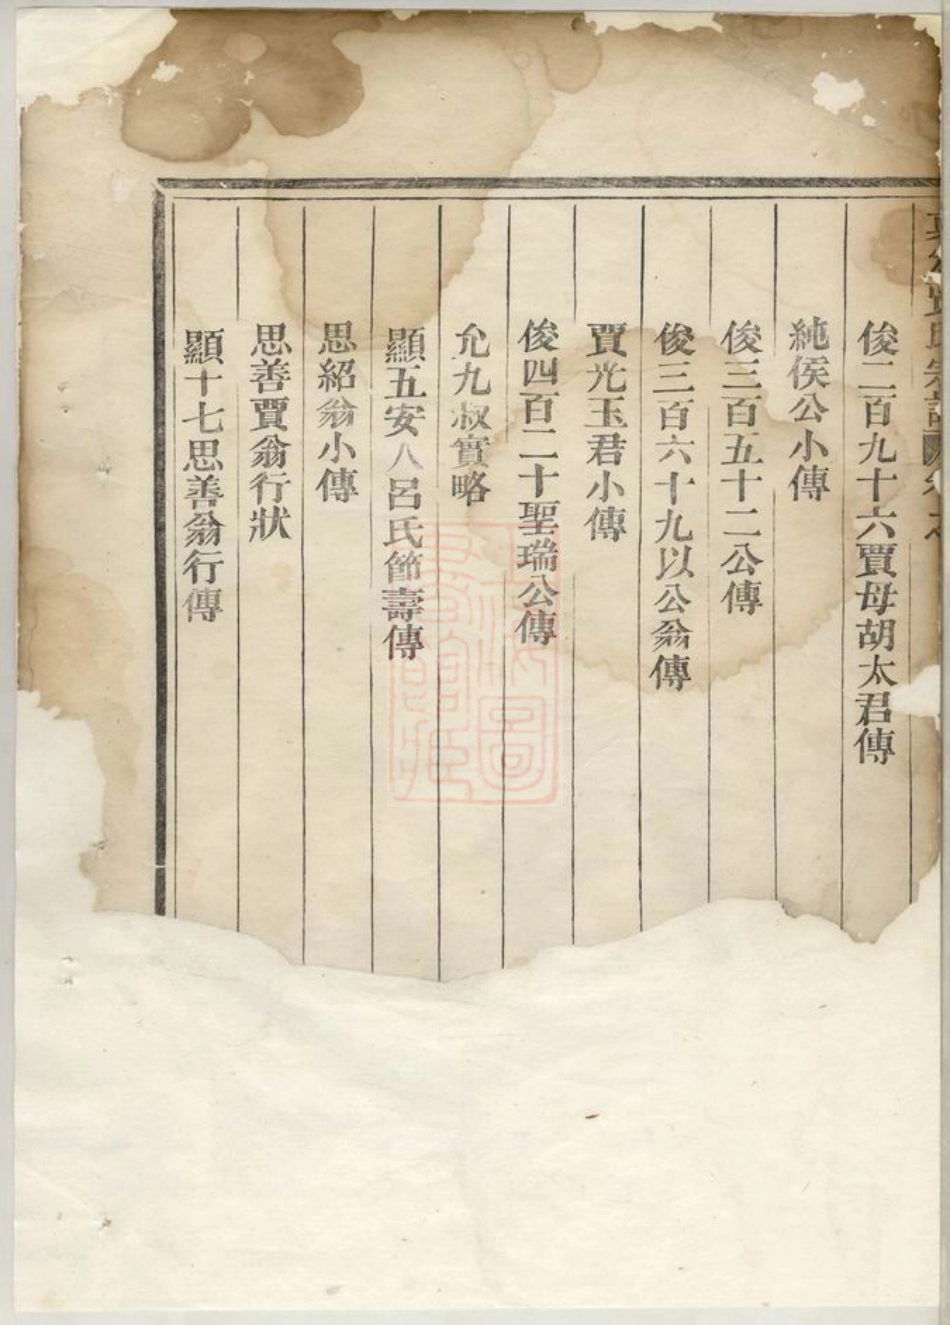 賈氏宗譜
俊二百九十六賈母胡太君傳
純侯公小傳
俊三百五十二公傳
俊三百六十九以公翁傳
賈光玉君小傳
俊四百二十聖瑞公傳
允九叔實略
顯五安八呂氏節壽傳
思紹翁小傳
思善賈翁行狀
顯十七思善翁行傳